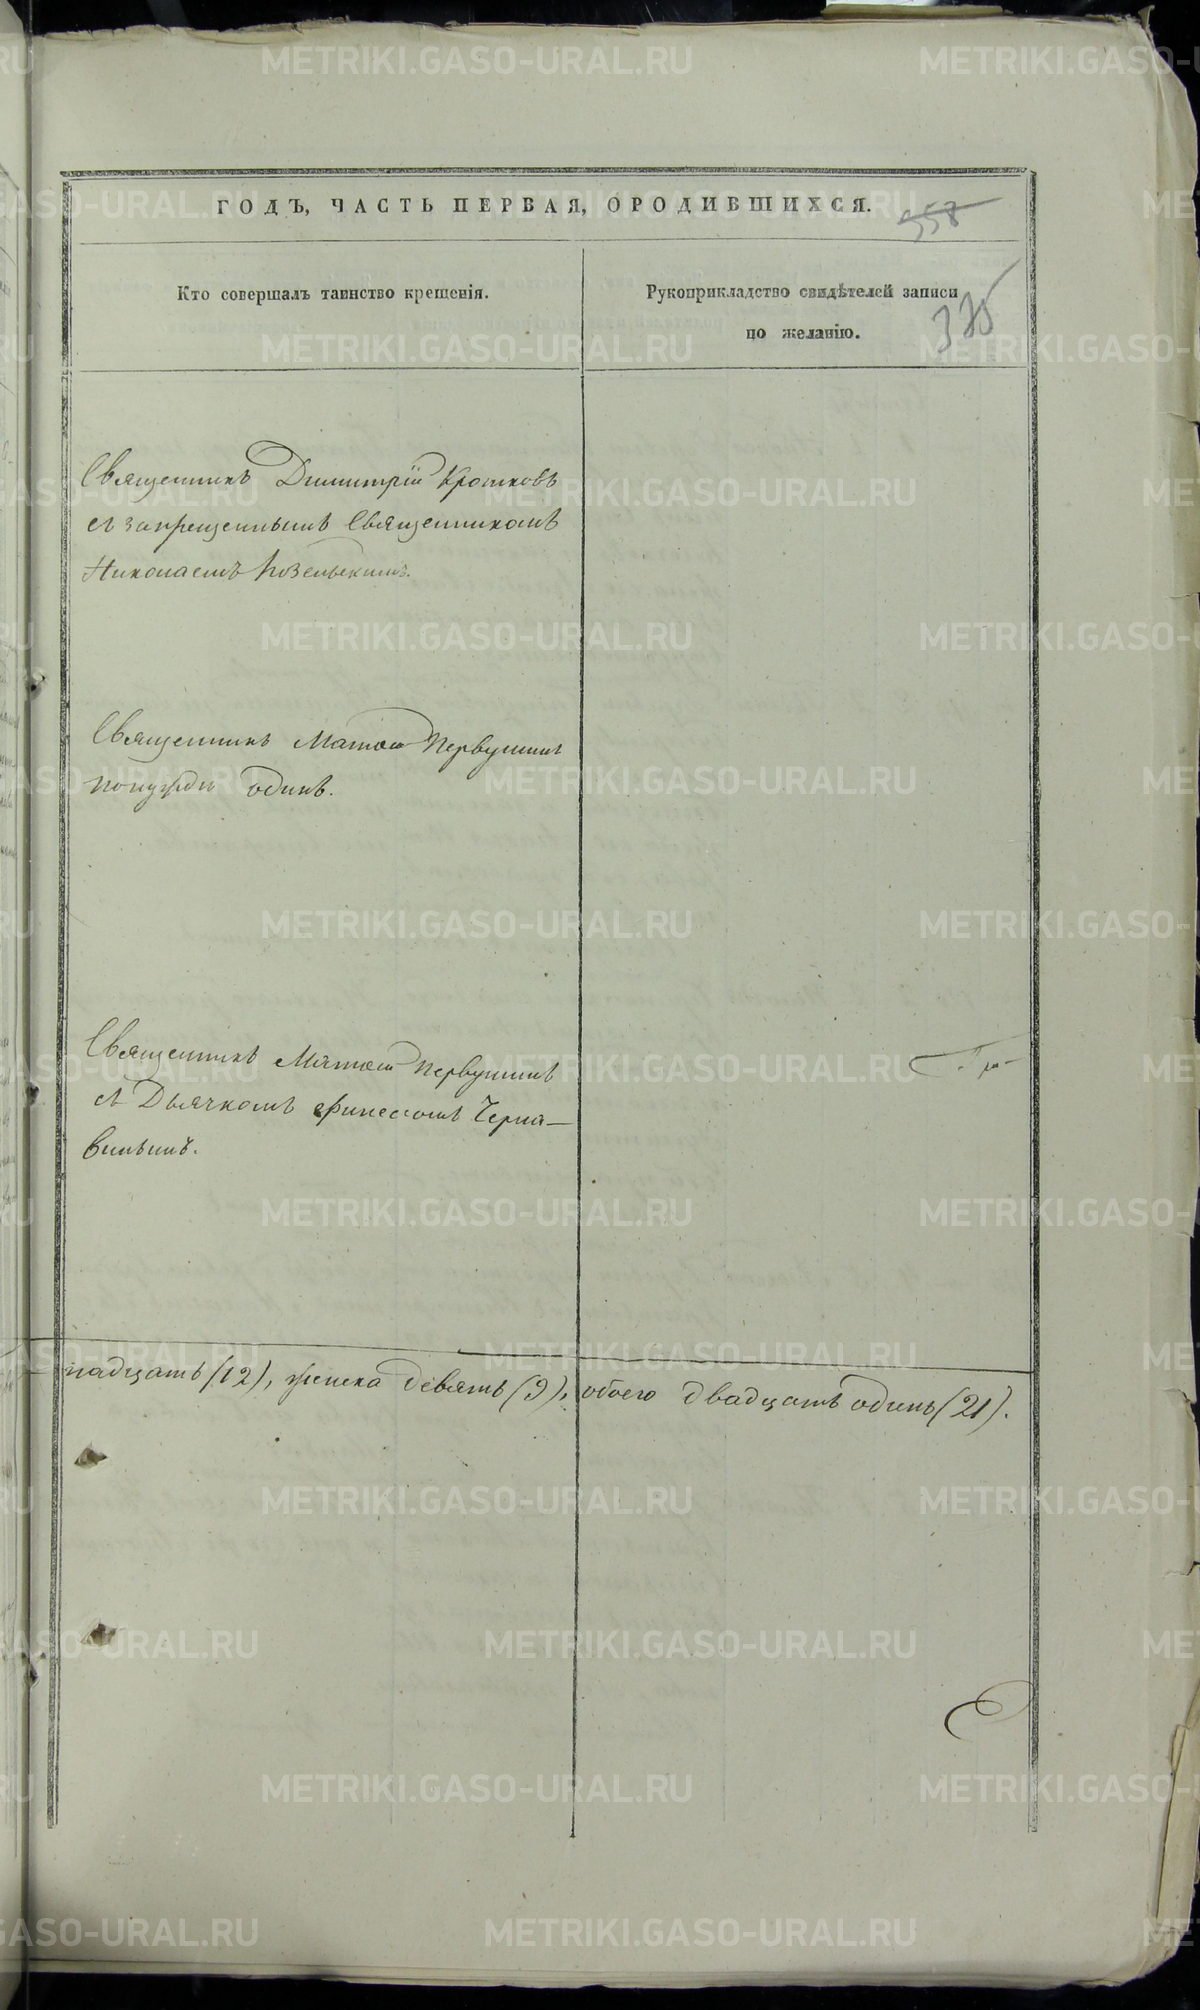 ГОДЪ, ЧАСТЬ ПЕРВАЯ, О РОДИВШИХСЯ.
358
Кто совершалъ таинство крещенія.
Рукоприкладство свидѣтелей записи
по желанію.
375
Священникъ Димитрій Кротковъ
съ запрещеннымъ Священникомъ
Николаемъ Козельскимъ.
Священникъ Матѳій Первушинъ
по нуждѣ одинъ.
Священникъ Матѳій Первушинъ
съ Дьячкомъ Финеесомъ Черня-
винымъ.
надцать (12), женска девять (9), обоего двадцать одинъ (21).
METRIKI.GASO-URAL.RU